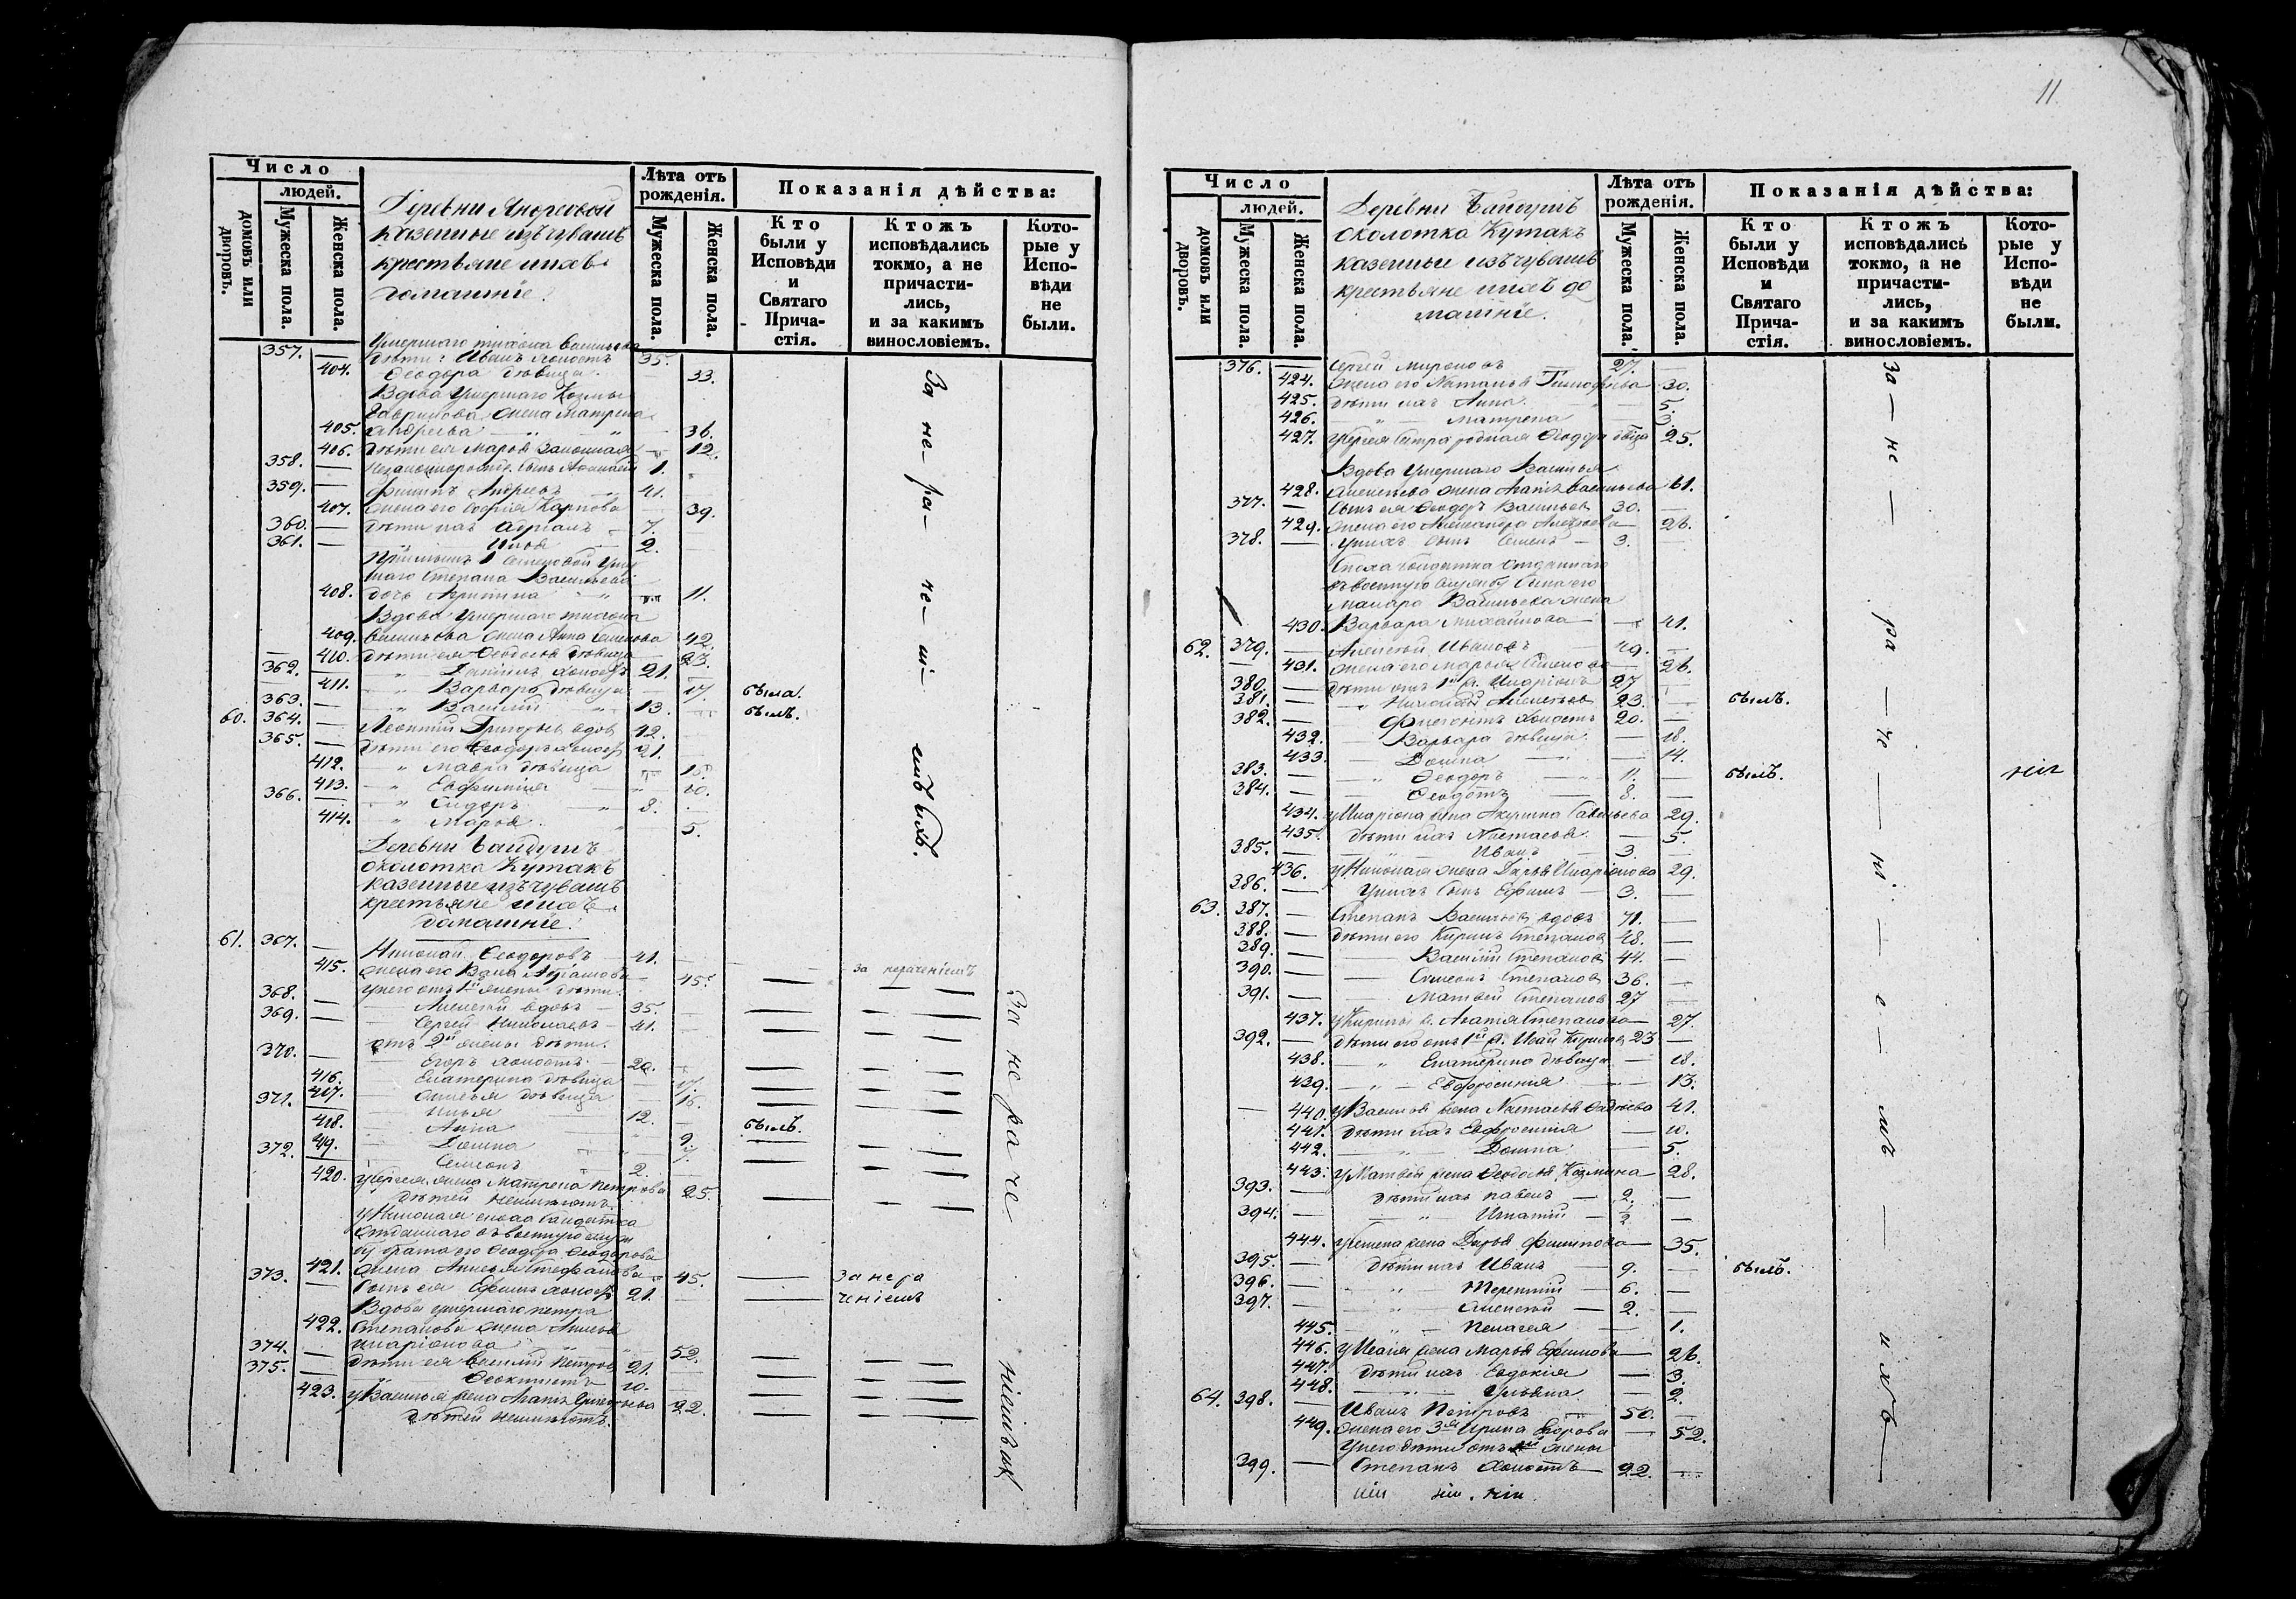 11
Число
людей.
домовъ или дворовъ.
Мужеска пола.
Женска пола.
Деревни Андреевой
казенные изъ чувашъ
крестьяне и ихъ
домашніе.
Лѣта отъ рожденія.
Мужеска пола.
Женска пола.
Показанія дѣйства:
Кто были у Исповѣди и Святаго Причастія.
Ктожъ исповѣдались токмо, а не причастились, и за какимъ винословіемъ.
Которые у Исповѣди не были.
Умершаго Тихона Васильева
357. — дѣти: Иванъ холостъ 35.
404. Ѳеодора дѣвица 33.
Вдова умершаго Козмы
Гаврилова жена Матрена
405. Андреева 36.
406. дѣти ея Марья законная 12.
358. — незаконорожд. сынъ 1.
359. — Филипъ Андреевъ 41.
407. жена его Софія Карпова 39.
360. — дѣти ихъ Адріанъ 7.
361. — Илья 2.
шаго Степана Васильева
408. дочь 11.
Вдова умершаго Тихона
409. Васильева жена Анна Семенова 42.
410. дѣти ея Ѳеодосья дѣвица 23.
362. — Даніилъ холостъ 21.
411. Варвара дѣвица 17. была.
363. — Василій 13. былъ.
60. 364. — Леонтій Григорьевъ вдовъ 42.
365. — дѣти его Ѳеодоръ холостъ 21.
412. Мавра дѣвица 15.
413. Евфимія 10.
366. — Сидоръ 8.
414. Марья 5.
За не-ра-че-ні-емъ ихъ.
Деревни Байдушъ
околотка Кутакъ
казенные изъ чувашъ
крестьяне и ихъ
домашніе.
61. 367. — Николай Ѳеодоровъ 41.
415. жена его 45. — за нераченіемъ
368. — у него отъ 1й жены дѣти:
Алексѣй вдовъ 35.
369. — Сергѣй Николаевъ 41.
отъ 2й жены дѣти:
370. — Егоръ холостъ 20.
416. Екатерина дѣвица 17.
417. дѣвица 16.
371. — Илья 12. былъ.
418. Анна 9.
419. Домна 7.
372. Семіонъ 2.
420. у Сергѣя жена Матрена Петрова 25.
дѣтей неимѣютъ.
у Николая сноха солдатка
отданнаго въ военную служ
бу брата его Ѳеодора Ѳеодорова
421. жена Стефанова 45. — за нера
373. — сынъ ея Ефимъ холостъ 21. — ченіемъ
Вдова умершаго Петра
422. Степанова жена
Иларіонова 52.
374. — дѣти ея Василій Петровъ 21.
375. — Ѳеоктистъ 10.
423. у Василья жена Агаѳья Григорьева 22.
дѣтей неимѣютъ.
За не ра че ніемъ ихъ
Число
людей.
домовъ или дворовъ.
Мужеска пола.
Женска пола.
Деревни Байдушъ
околотка Кутакъ
казенные изъ чувашъ
крестьяне и ихъ до
машніе.
Лѣта отъ рожденія.
Мужеска пола.
Женска пола.
Показанія дѣйства:
Кто были у Исповѣди и Святаго Причастія.
Ктожъ исповѣдались токмо, а не причастились, и за какимъ винословіемъ.
Которые у Исповѣди не были.
376. — Сергѣй Мироновъ 27.
424. жена его Наталья Тимофѣева 30.
425. дѣти ихъ Анна 5.
426. Матрена 3.
427. у Сергѣя сестра родная Ѳеодора дѣвица 25.
Вдова умершаго Василья
428. Алексѣева жена Агаѳья Васильева 61.
377. — сынъ ея Ѳеодоръ Васильевъ 30.
429. жена его Александра Алексѣева 26.
378. — у нихъ сынъ Семенъ 3.
Сноха солдатка отданнаго
въ военную службу сына его
Макара Васильева жена
430. Варвара Михайлова 41.
62. 379. — Алексѣй Ивановъ 49.
431. жена его Марья Семенова 26.
380. — дѣти отъ 1й ж. Иларіонъ 27
381. — Николай Алексѣевъ 23. былъ.
382. — холостъ 20.
432. Варвара дѣвица 18.
433. Домна 14.
383. — Ѳеодоръ 11. былъ.
384. — Ѳеодотъ 8.
434. у Иларіона жена Акулина Савельева 29.
435. дѣти ихъ Настасья 5.
385. — Иванъ 3.
436. у Николая жена Дарья Иларіонова 29.
386. — у нихъ сынъ Ефимъ 3.
63. 387. — Степанъ Васильевъ вдовъ 71.
388. — дѣти его Кирилъ Степановъ 48.
389. — Василій Степановъ 44.
390. — Симеонъ Степановъ 36.
391. — Матвѣй Степановъ 27
437. у Кирила ж. Агаѳья Степанова 27.
392. — дѣти его отъ 1й ж. Исай Кирилъ 23
438. Екатерина дѣвица 18.
439. Евфросинія 13.
440. у Василья жена Настасья 41.
441. дѣти ихъ Евфросинія 10.
442. Домна 5.
443. у Матвѣя жена Ѳеодосья Козмина 28.
393. — дѣти ихъ Павелъ 2.
394. — Игнатій ½
444. у Семена жена Дарья Филипова 35.
395. — дѣти ихъ Иванъ 9. былъ.
396. — Терентій 6.
397. — Алексѣй 2.
445. Пелагея 1.
446. у Исаія жена Марья Ефимова 26.
447. дѣти ихъ Евдокія 3.
448. Ульяна 2.
64. 398. — Иванъ Петровъ 50.
449. жена его 3я Ирина Егорова 52.
у него дѣти отъ жены
399. — Степанъ холостъ 22.
За — не — ра — че — ні — е — мъ — ихъ